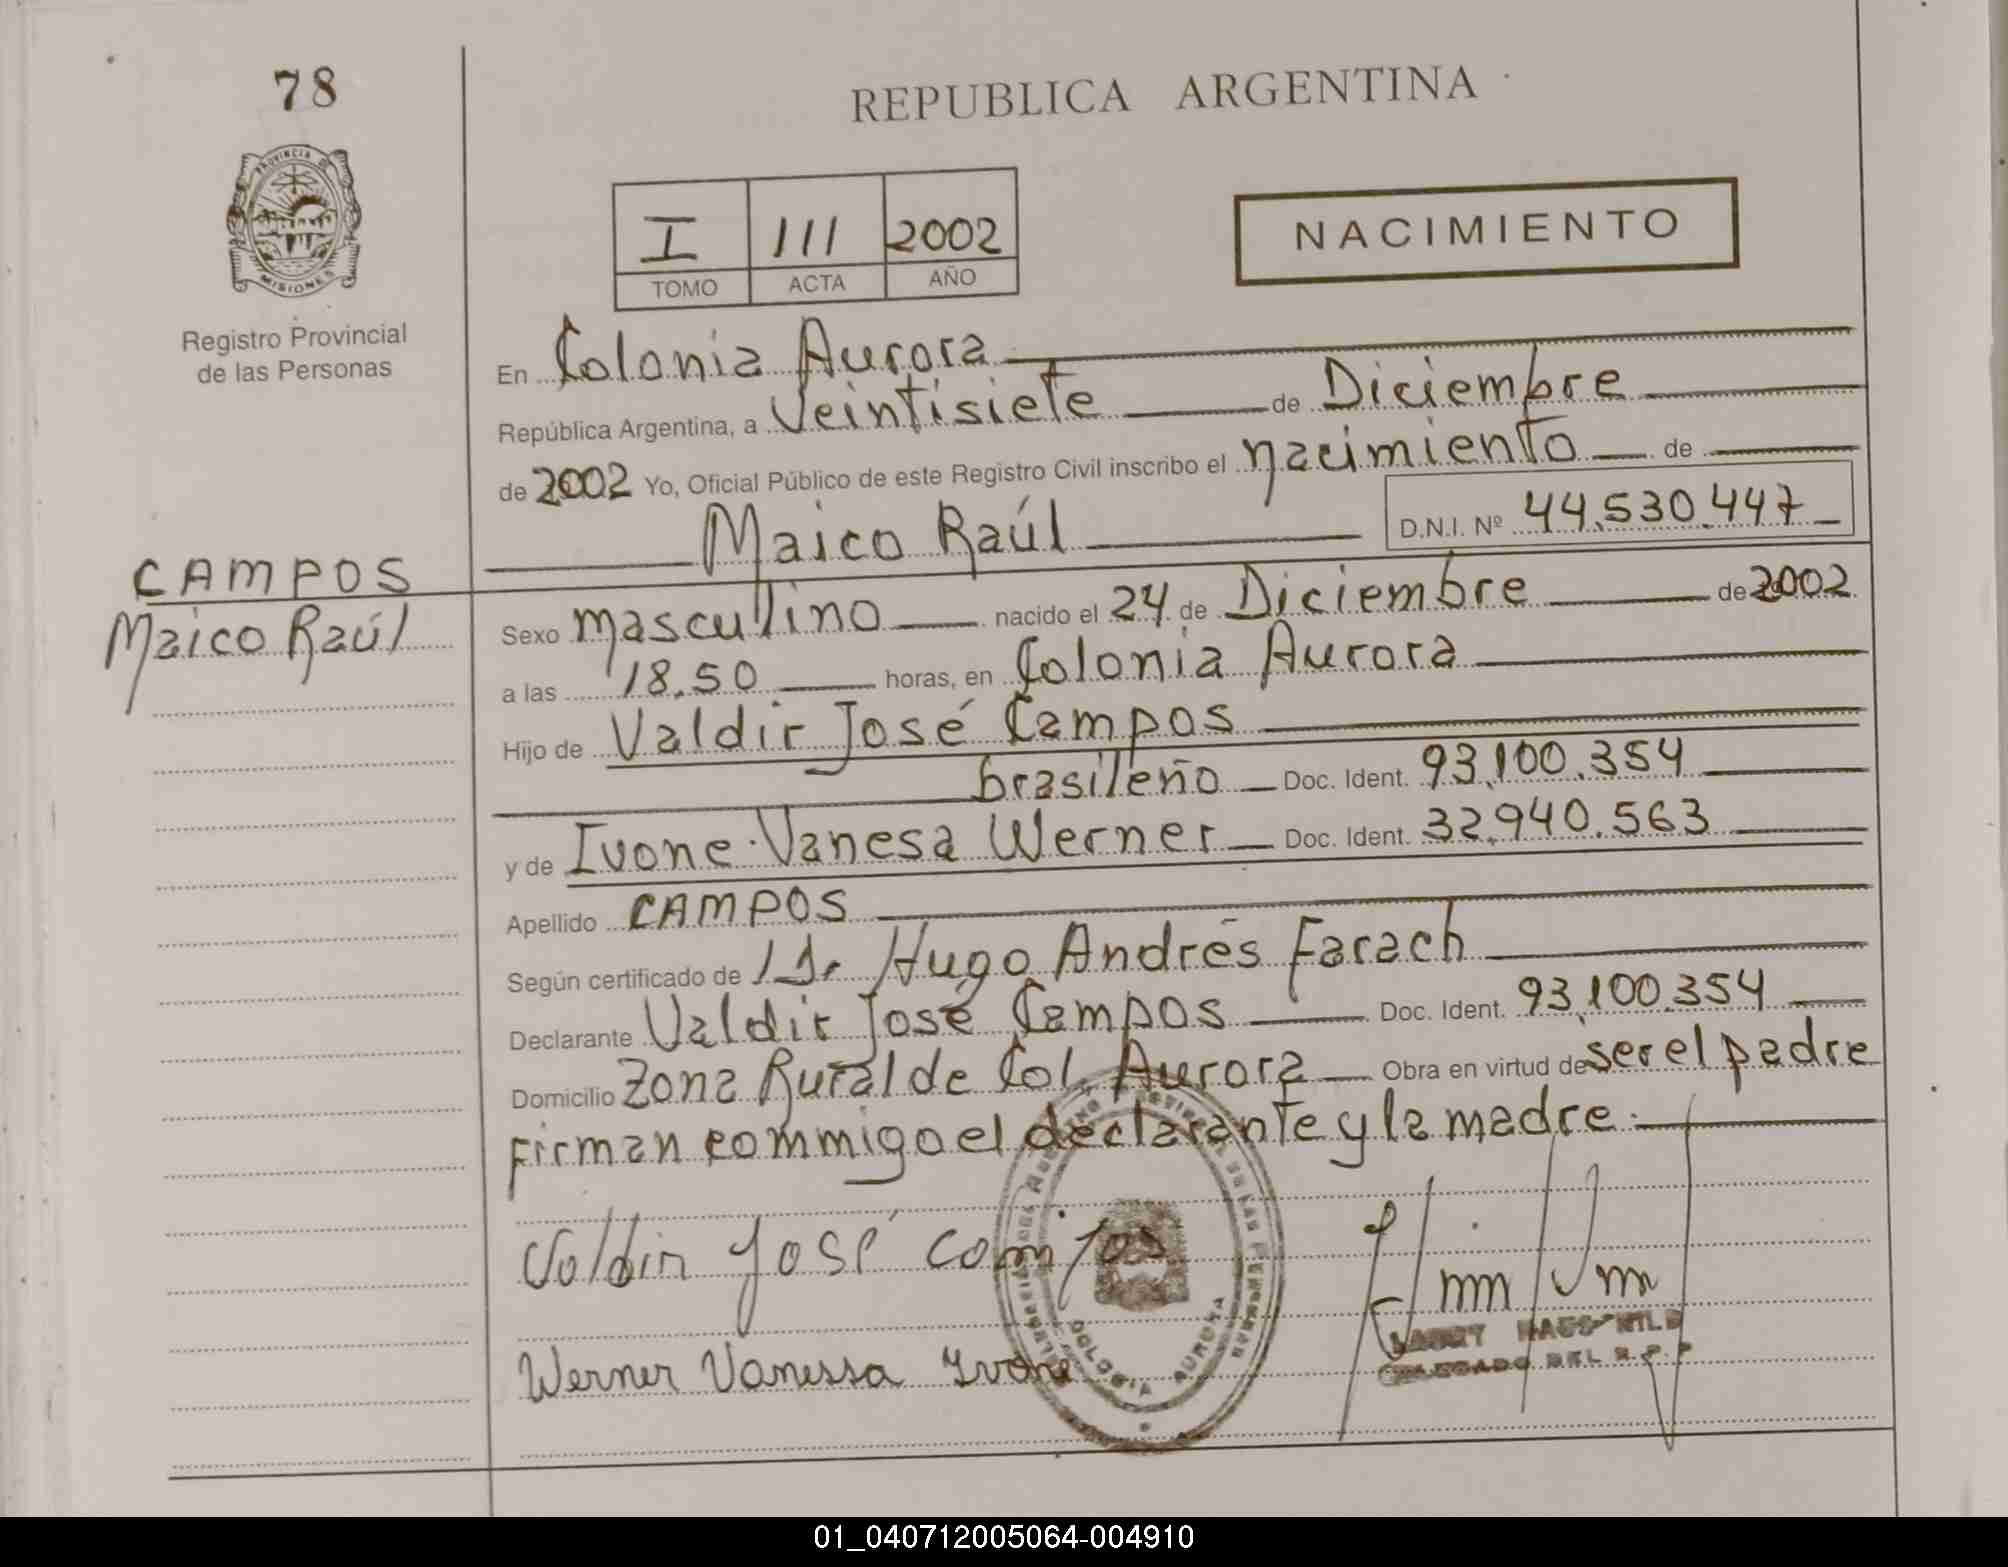 78
REPUBLICA ARGENTINA
PROVINCIA DE
MISIONES
Registro Provincial
de las Personas
I 111 2002
TOMO ACTA AÑO
NACIMIENTO
En Colonia Aurora
República Argentina, a Veintisiete de Diciembre
de 2002 Yo, Oficial Público de este Registro Civil inscribo el nacimiento de
Maico Raúl D.N.I. Nº 44.530.447
CAMPOS
Maico Raúl
Sexo masculino nacido el 24 de Diciembre de 2002
a las 18.50 horas, en Colonia Aurora
Hijo de Valdir José Campos
brasileño Doc. Ident. 93.100.354
y de Ivone Vanesa Werner Doc. Ident. 32.940.563
Apellido CAMPOS
Según certificado de Dr Hugo Andrés Farach
Declarante Valdir José Campos Doc. Ident. 93.100.354
Domicilio Zona Rural de Col. Aurora Obra en virtud de ser el padre
Firman commigo el declarante y la madre.
Valdir José Campos
Werner Vanessa Ivone
COLONIA AURORA
DELEGADO DEL R.P.P
01_040712005064-004910